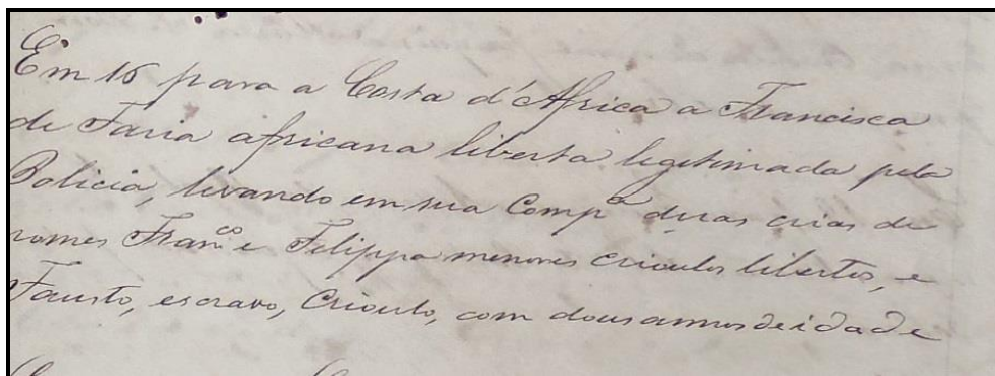 Em 16 para a Costa d'Africa a Francisca
de Faria africana liberta legitimada pela
Policia, levando em sua Compª duas crias de
nomes Franco e Felippa menores crioulos libertos, e
Fausto, escravo, Crioulo, com dous annos de idade